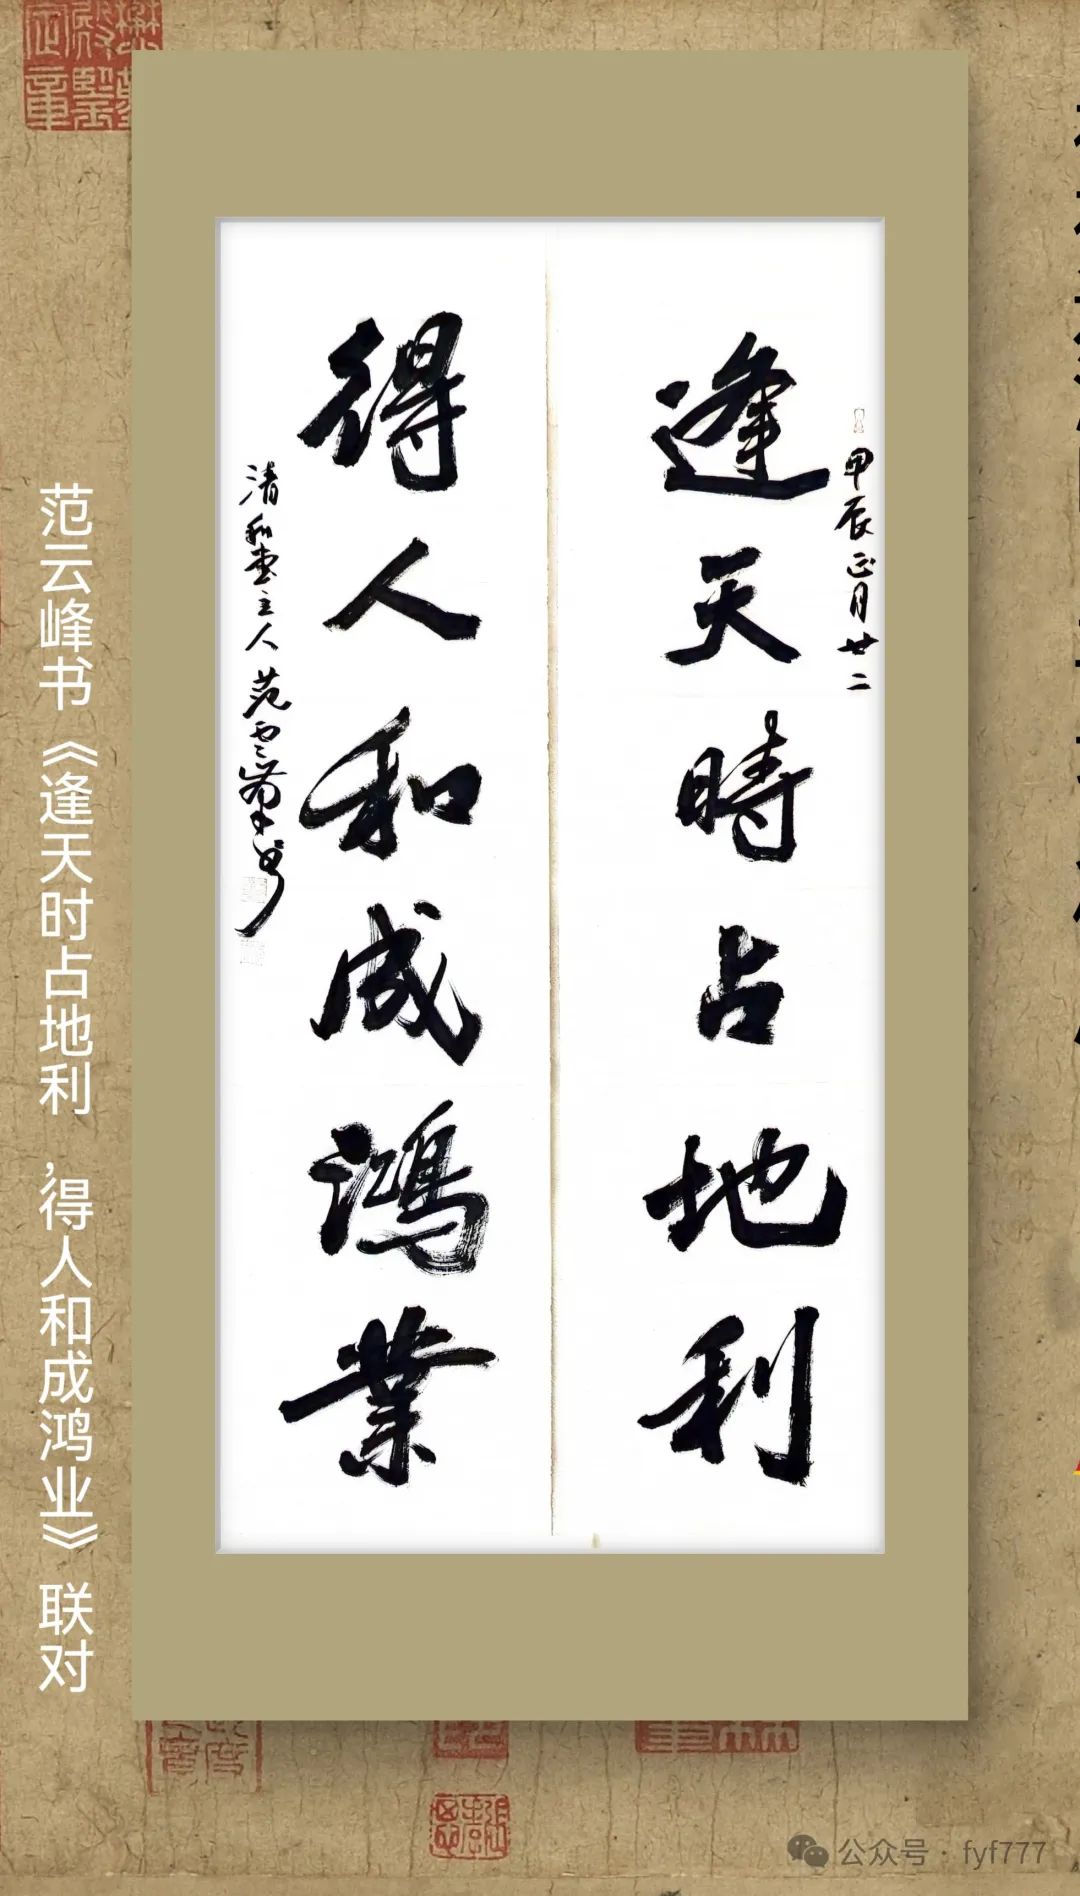 逢天時占地利
甲辰正月廿二
得人和成鴻業
清和堂主人范云峰书
范云峰书《逢天时占地利，得人和成鸿业》联对
公众号·fyf777